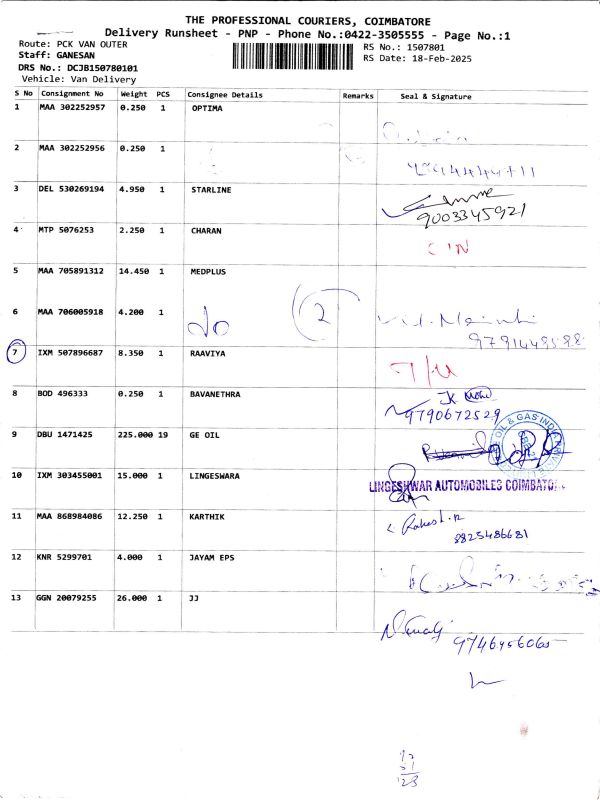 THE PROFESSIONAL COURIERS, COIMBATORE
Delivery Runsheet - PNP - Phone No.:0422-3505555 - Page No.:1
Route: PCK VAN OUTER
RS No.: 1507801
Staff: GANESAN
RS Date: 18-Feb-2025
DRS No.: DCJB150780101
Vehicle: Van Delivery
S No Consignment No Weight PCS Consignee Details Remarks Seal & Signature
1 MAA 302252957 0.250 1 OPTIMA
2 MAA 302252956 0.250 1
3 DEL 530269194 4.950 1 STARLINE
9003345921
4 MTP 5076253 2.250 1 CHARAN
5 MAA 705891312 14.450 1 MEDPLUS
6 MAA 706005918 4.200 1
2
7 IXM 507896687 8.350 1 RAAVIYA
8 BOD 496333 0.250 1 BAVANETHRA
9790672529
9 DBU 1471425 225.000 19 GE OIL
OIL & GAS INDIA
10 IXM 303455001 15.000 1 LINGESWARA
LINGESHWAR AUTOMOBILES COIMBATORE
11 MAA 868984086 12.250 1 KARTHIK
Rakesh.R
8825486681
12 KNR 5299701 4.000 1 JAYAM EPS
13 GGN 20079255 26.000 1 JJ